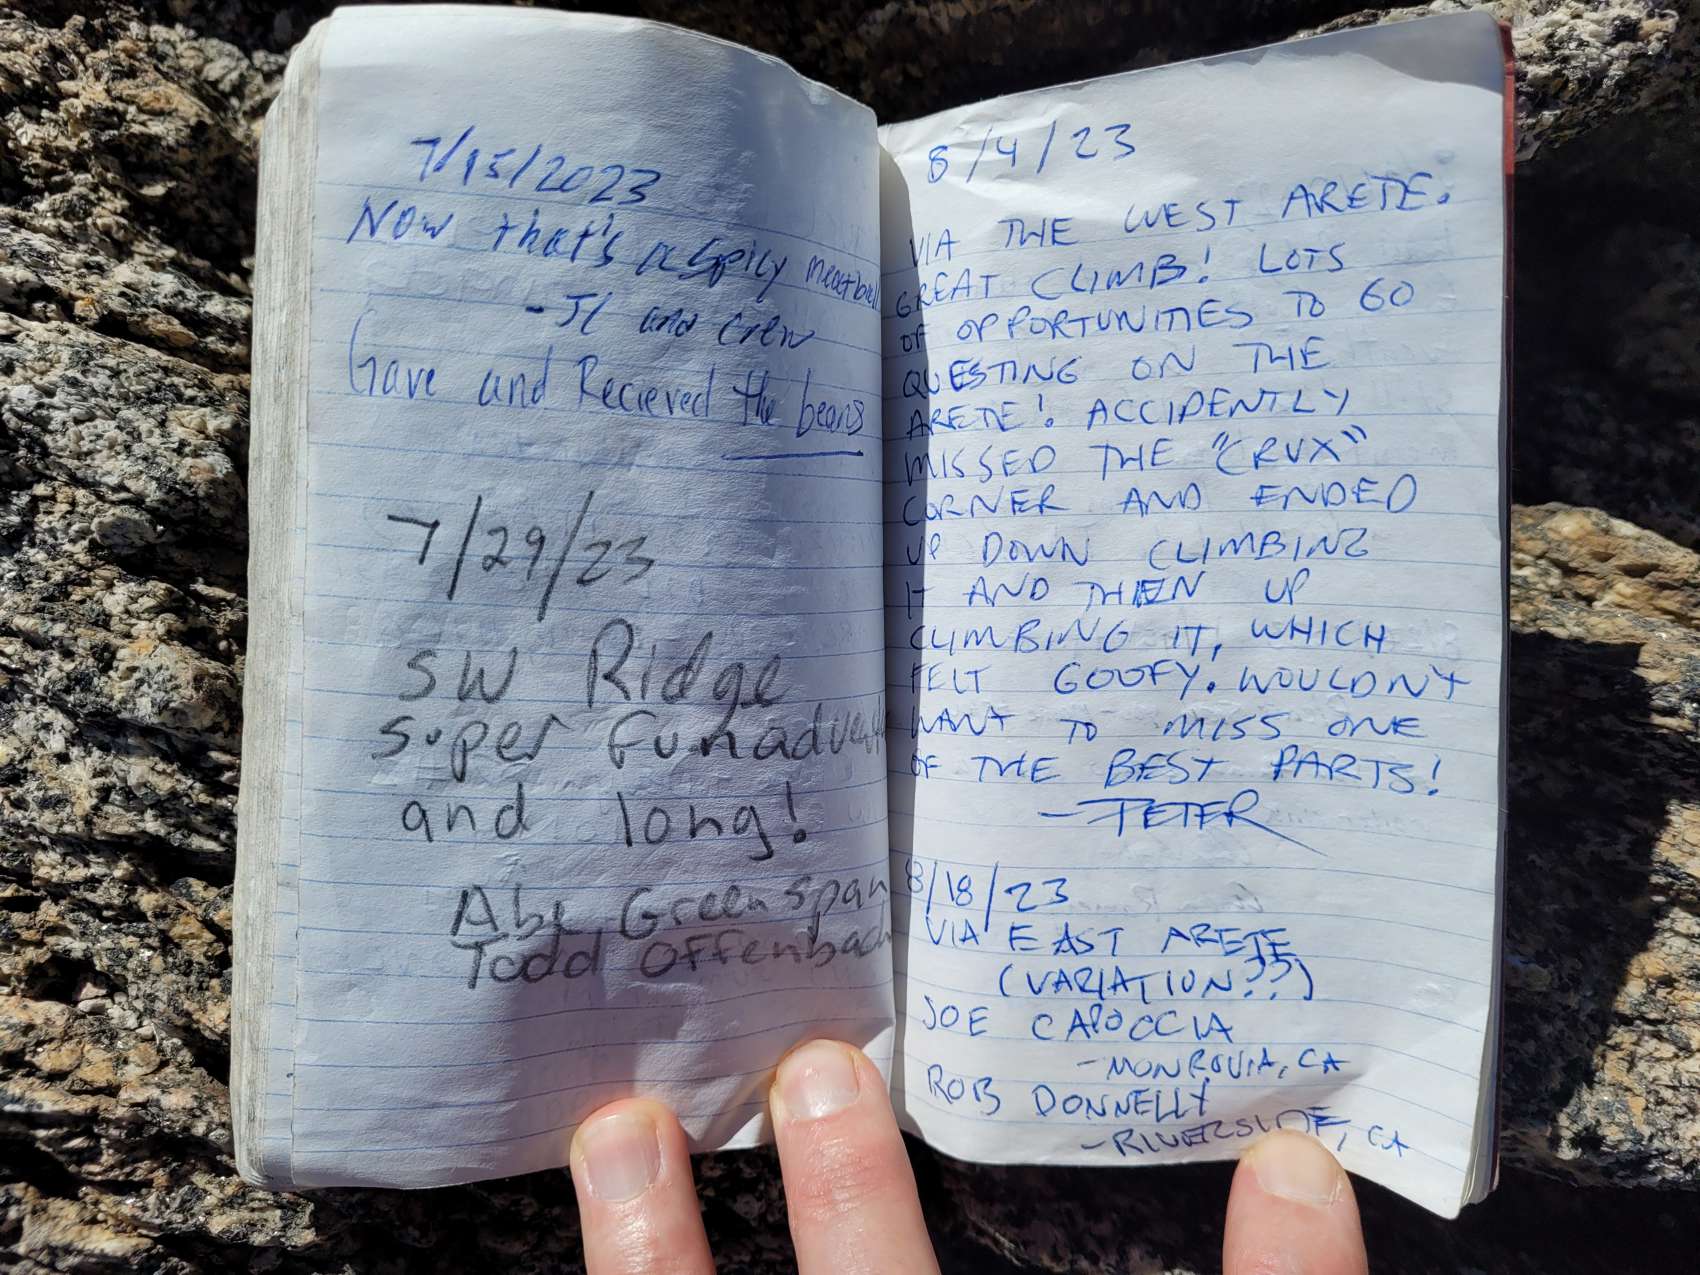 7/15/2023
Now that's a spicy meatball
- JC and crew
Gave and Recieved the beans
7/29/23
SW Ridge
super Fun adventure
and long!
Abe Greenspan
Todd Offenbach
8/4/23
VIA THE WEST ARETE.
GREAT CLIMB! LOTS
OF OPPORTUNITIES TO GO
QUESTING ON THE
ARETE! ACCIDENTLY
MISSED THE "CRUX"
CORNER AND ENDED
UP DOWN CLIMBING
IT AND THEN UP
CLIMBING IT, WHICH
FELT GOOFY. WOULDN'T
WANT TO MISS ONE
OF THE BEST PARTS!
- PETER
8/18/23
VIA EAST ARETE
(VARIATION??)
JOE CAPOCCIA
- MONROVIA, CA
ROB DONNELLY
- RIVERSIDE, CA